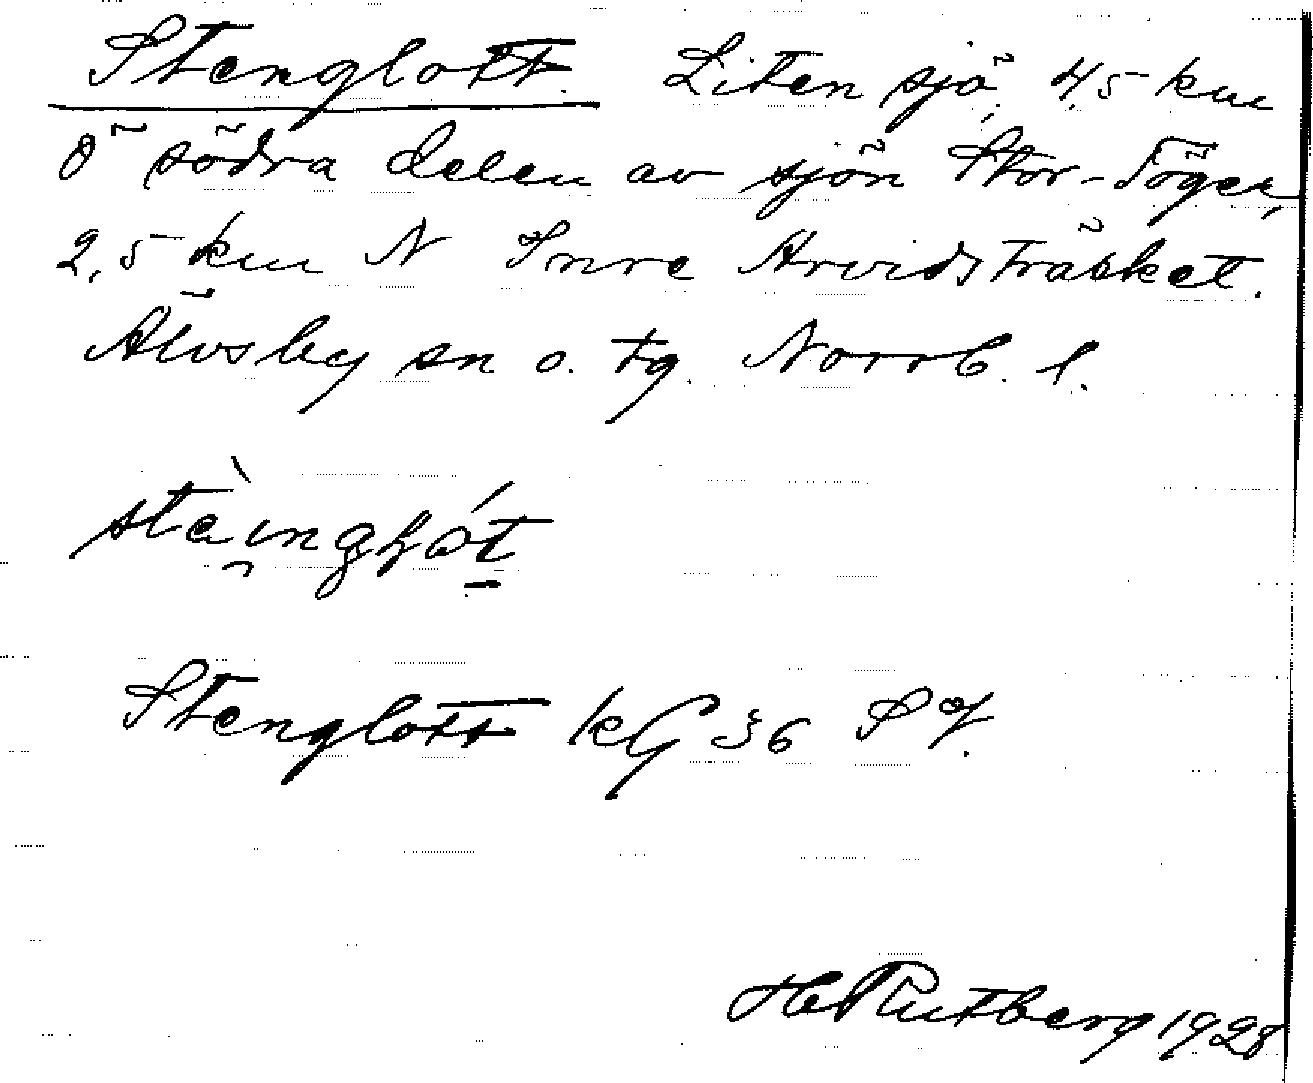 Stenglott. Liten sjö, 4,5 km
Ö södra delen av sjön Stor-Töger,
2,5 km N Inre Arvidsträsket.
Älvsby sn o. tg. Norrb. l.
Stenglott kG 36 SV.
H Rutberg 1928